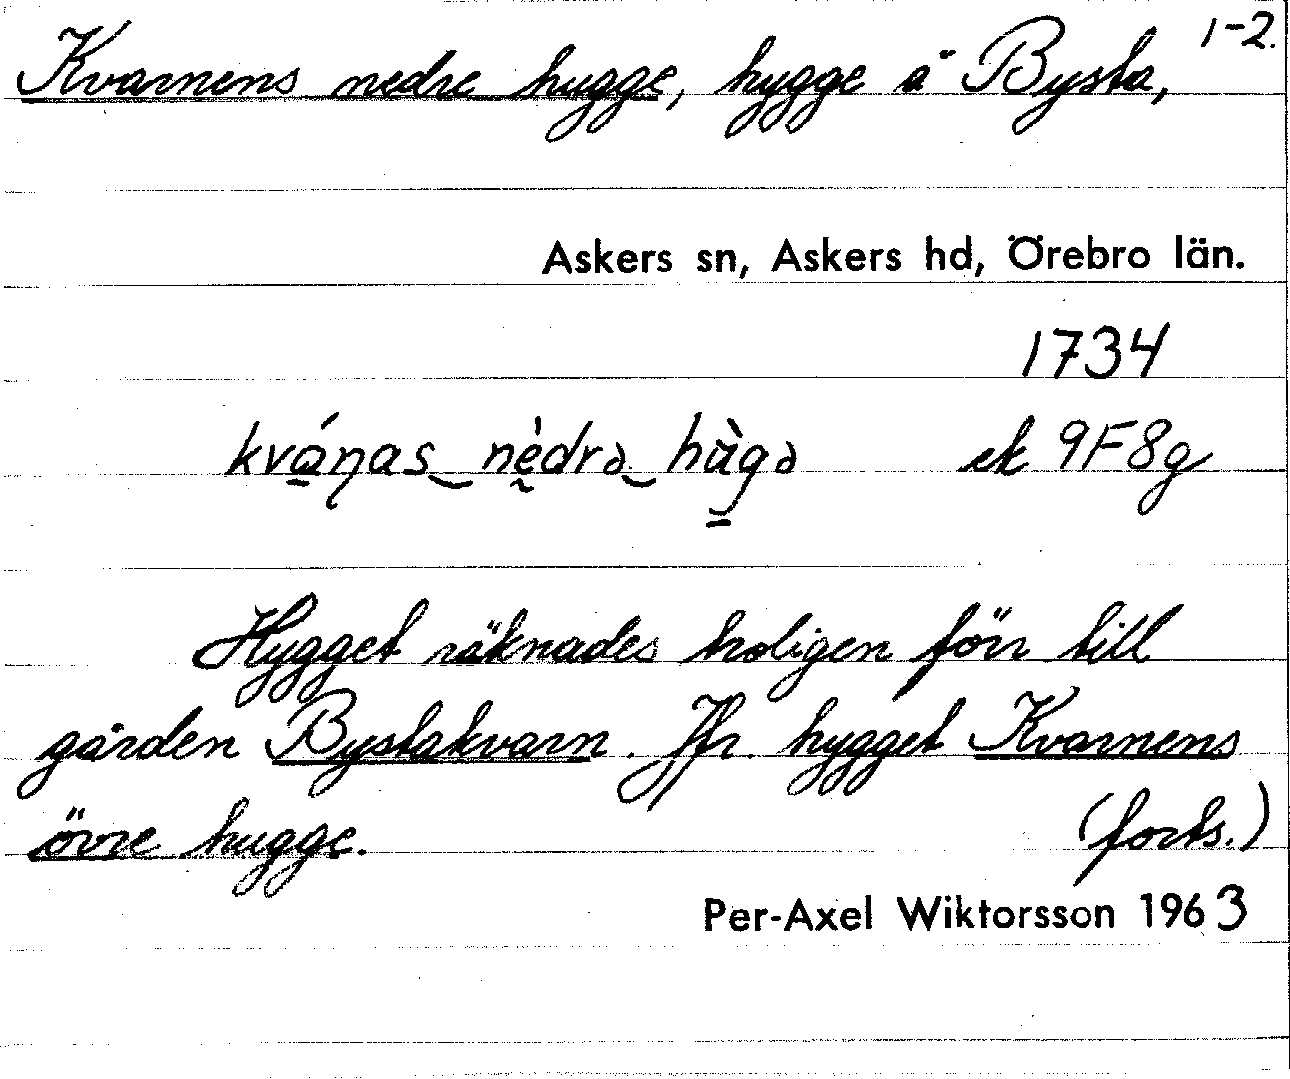 1-2.
Kvarnens nedre hugge, hygge å Bysta,
Askers sn, Askers hd, Örebro län.
1734
kvánas nèdrə hùgə ek 9F8g
Hygget räknades troligen förr till
gården Bystakvarn. Jfr hygget Kvarnens
övre hugge. (forts.)
Per-Axel Wiktorsson 1963